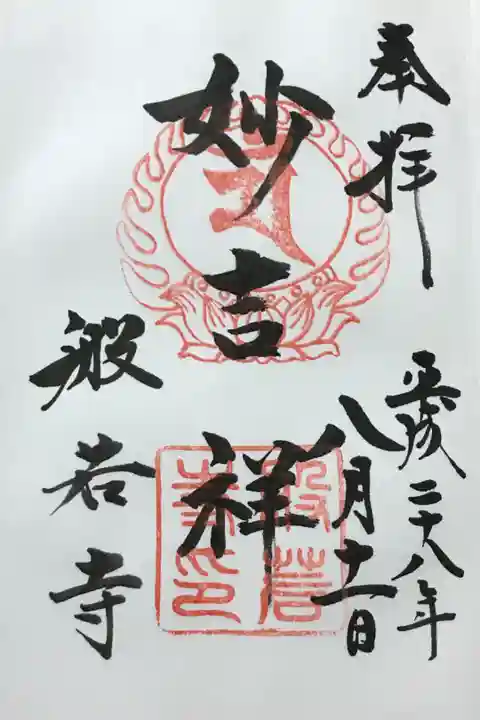 奉拝
平成二十八年
八月十一日
妙吉祥
般若寺
般若
寺印